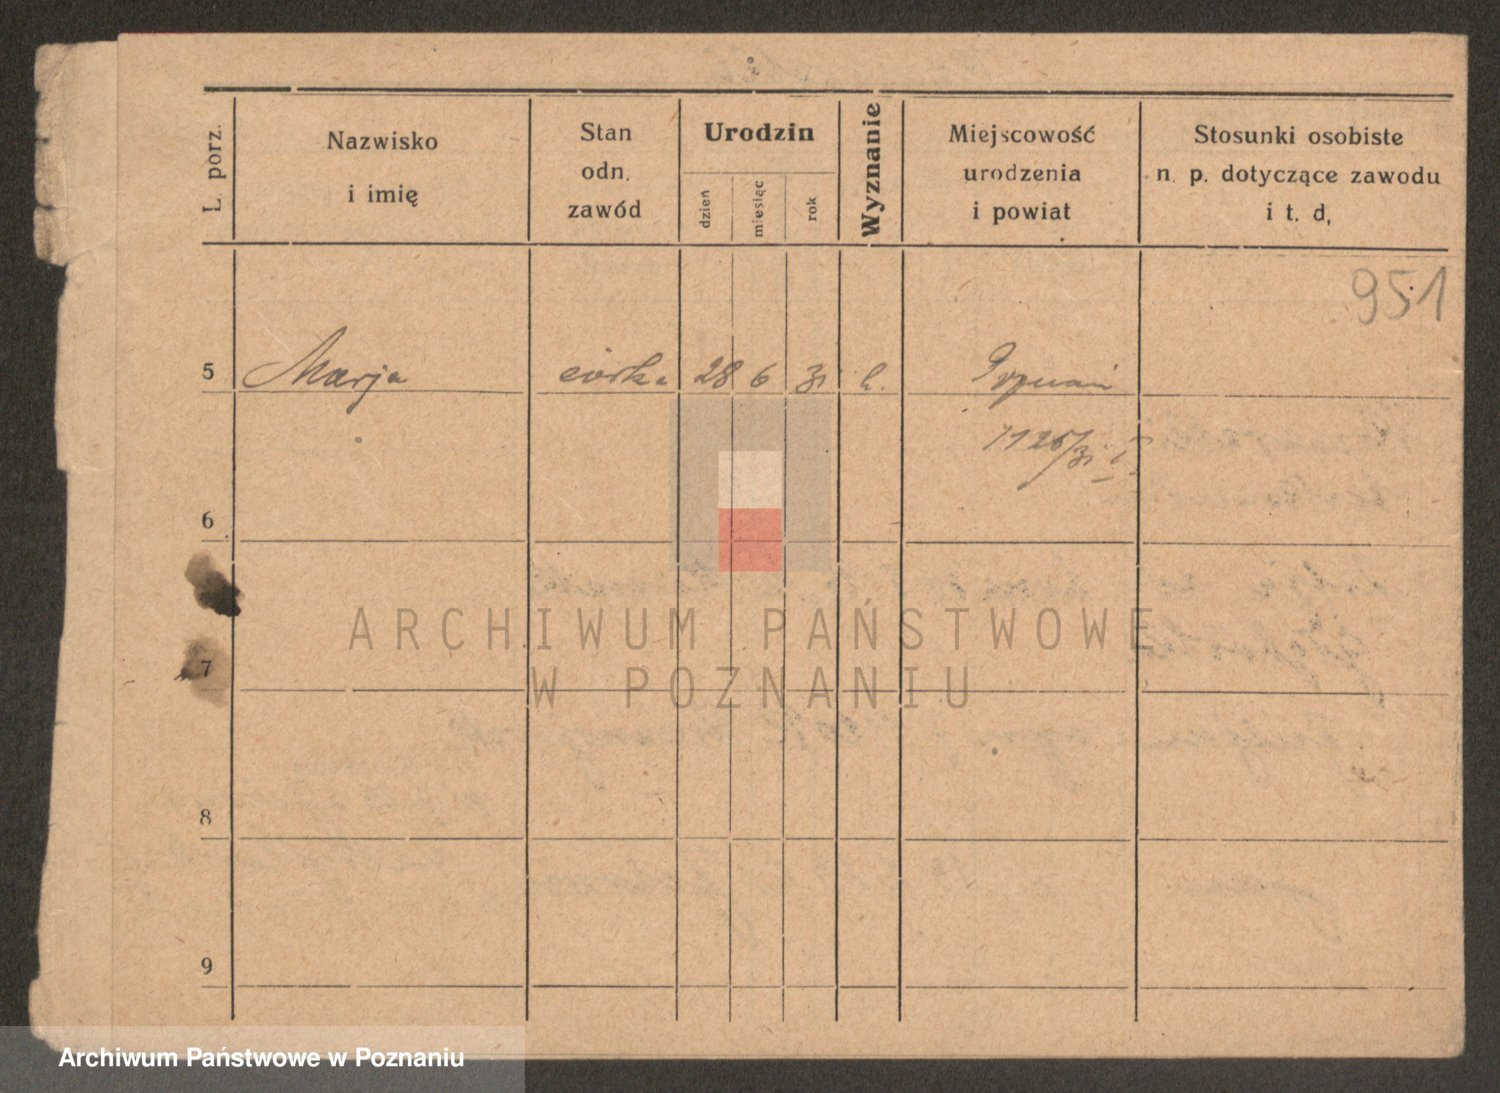 L. porz.
Nazwisko
i imię
Stan
odn.
zawód
Urodzin
dzień
miesiąc
rok
Wyznanie
Miejscowość
urodzenia
i powiat
Stosunki osobiste
n. p. dotyczące zawodu
i t. d,
951
5 Marja córka 28 6 31 k. Poznań
1125/31
6
7
8
9
ARCHIWUM PAŃSTWOWE
W POZNANIU
Archiwum Państwowe w Poznaniu